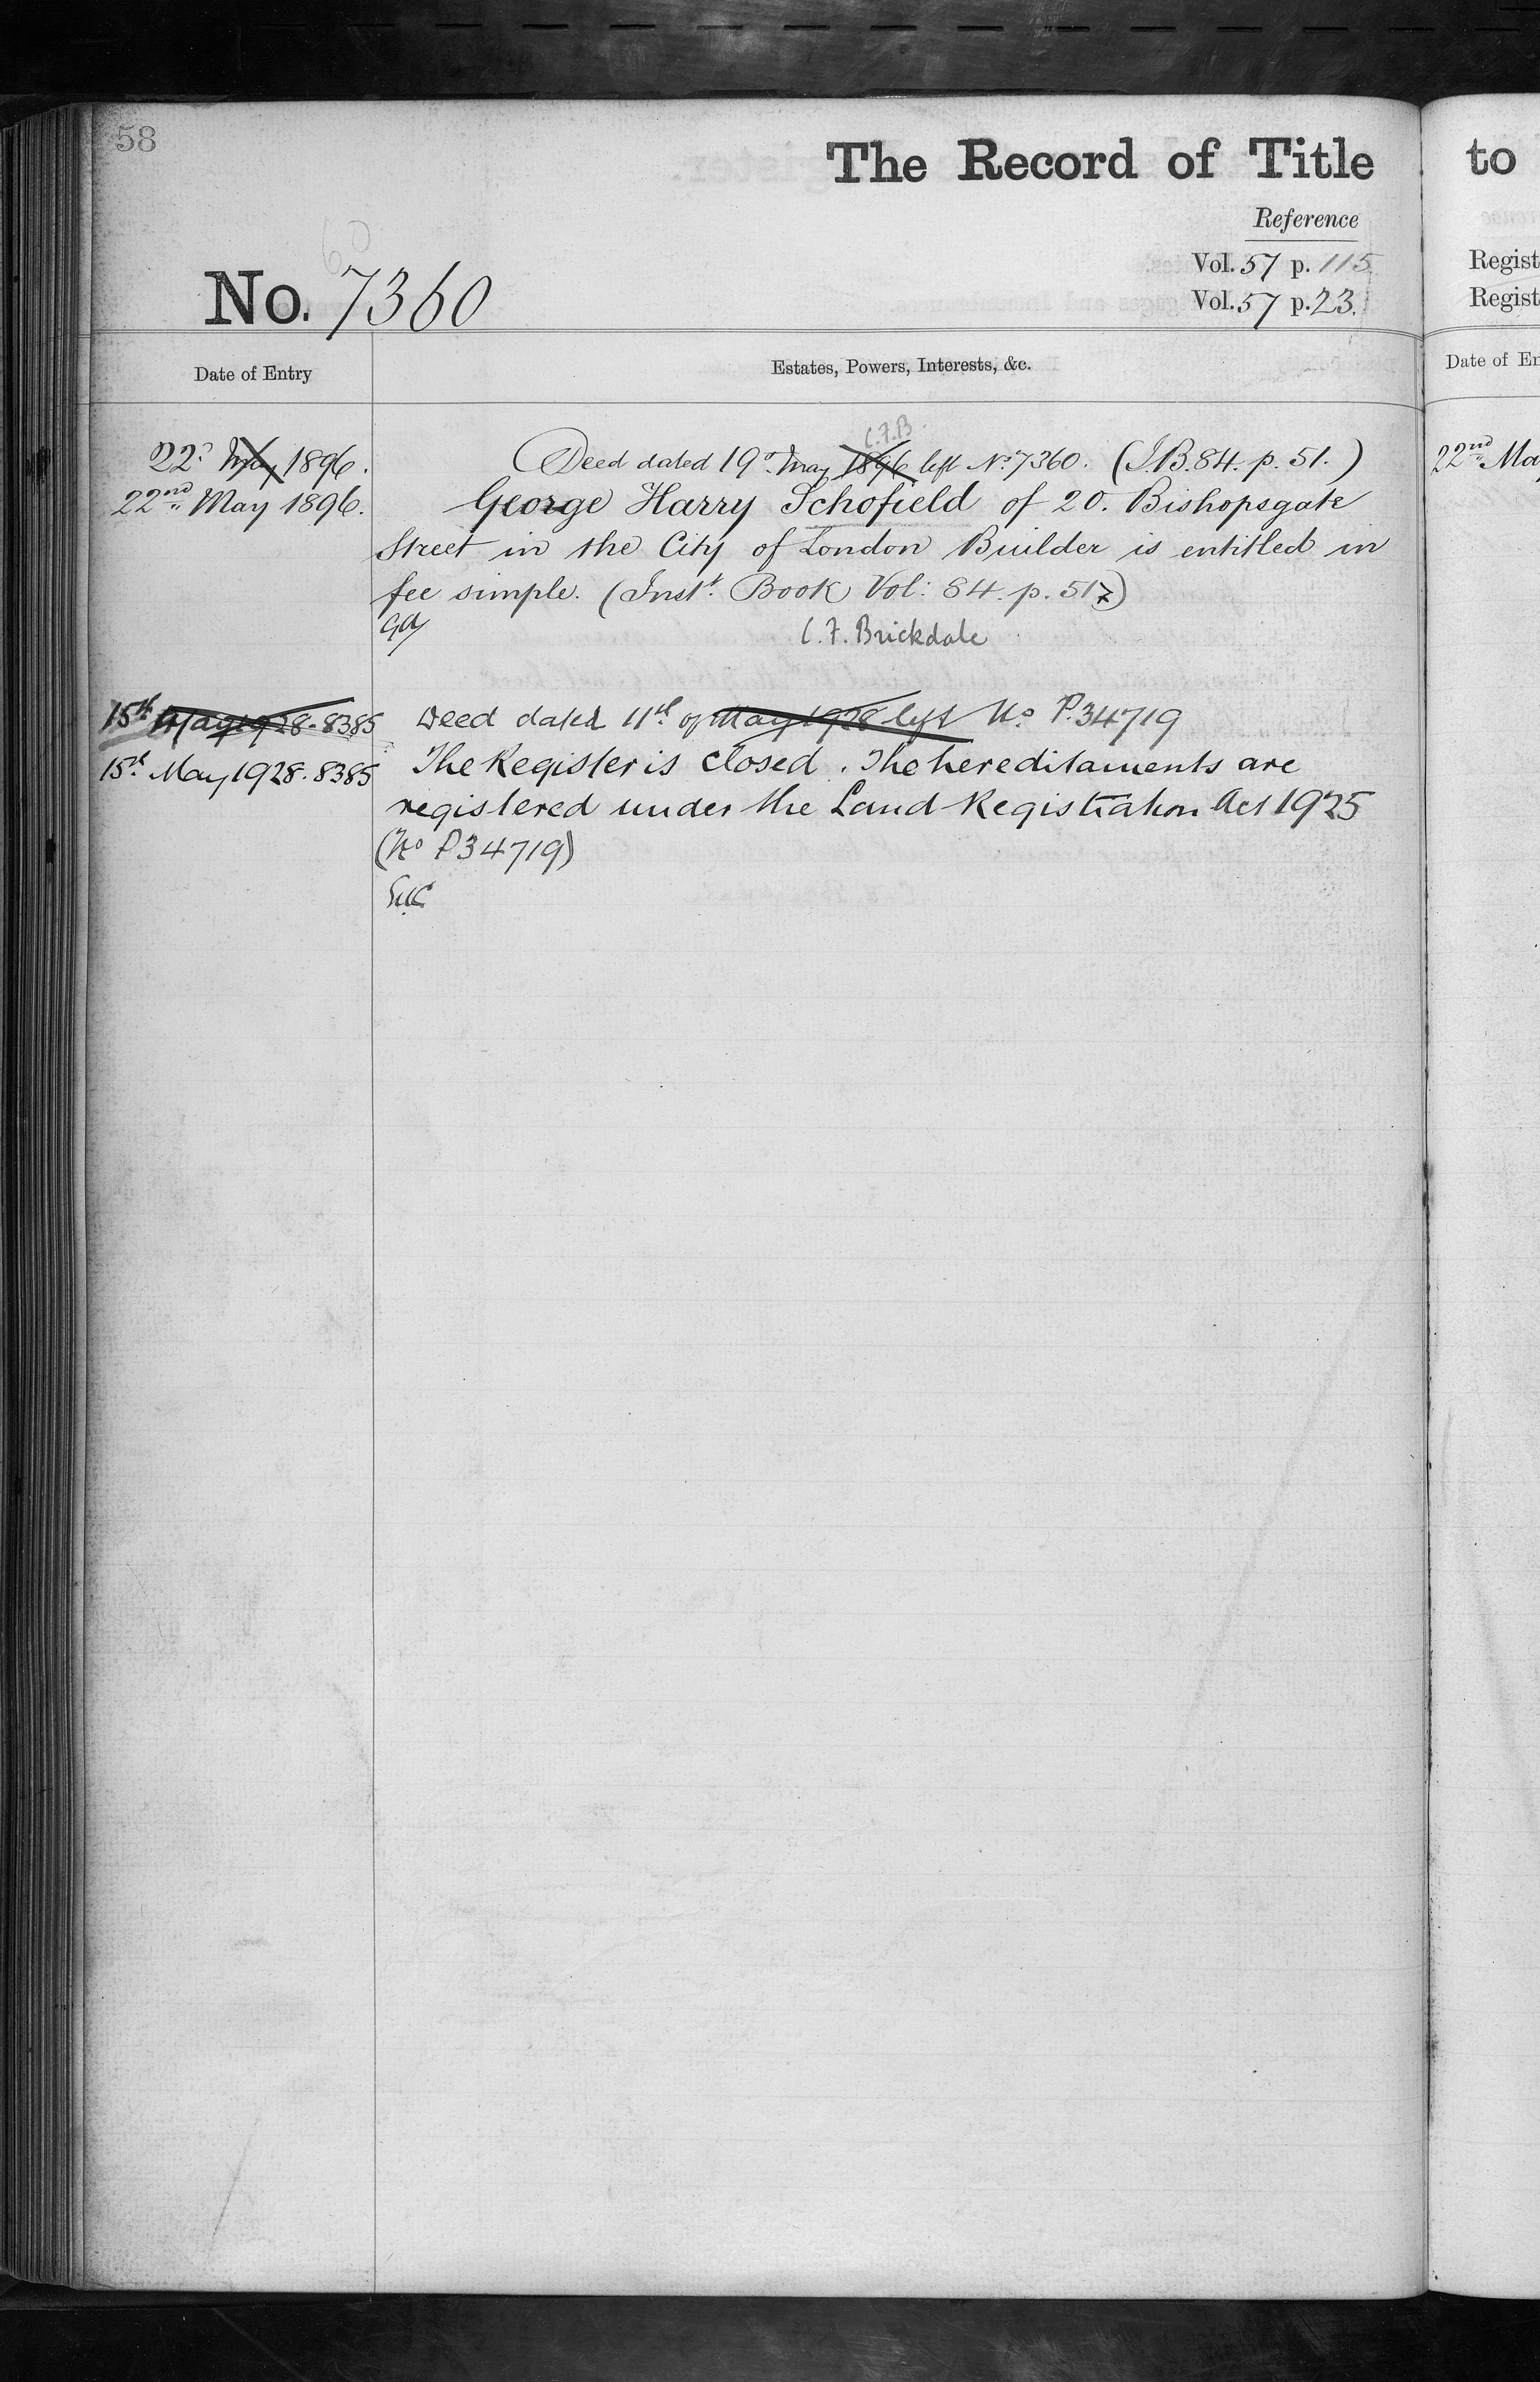 58
The Record of Title
Reference
No. 7360
Vol. 57 p. 115
Vol. 57 p. 23.
Date of Entry
Estates, Powers, Interests, &c.
C.F.B.
22d May 1896. Deed dated 19th May 1896 left No. 7360. (I.B. 84. p. 51.)
22nd May 1896. George Harry Schofield of 20. Bishopsgate
Street in the City of London Builder is entitled in
fee simple. (Inst. Book Vol: 84. p. 51)
C. F. Brickdale
15th May 1928. 8385 Deed dated 11th of May 1928 left No P.34719
15th May 1928. 8385 The Register is closed. The hereditaments are
registered under the Land Registration Act 1925
(No P34719)
to
Regist
Regist
Date of En
22nd Ma